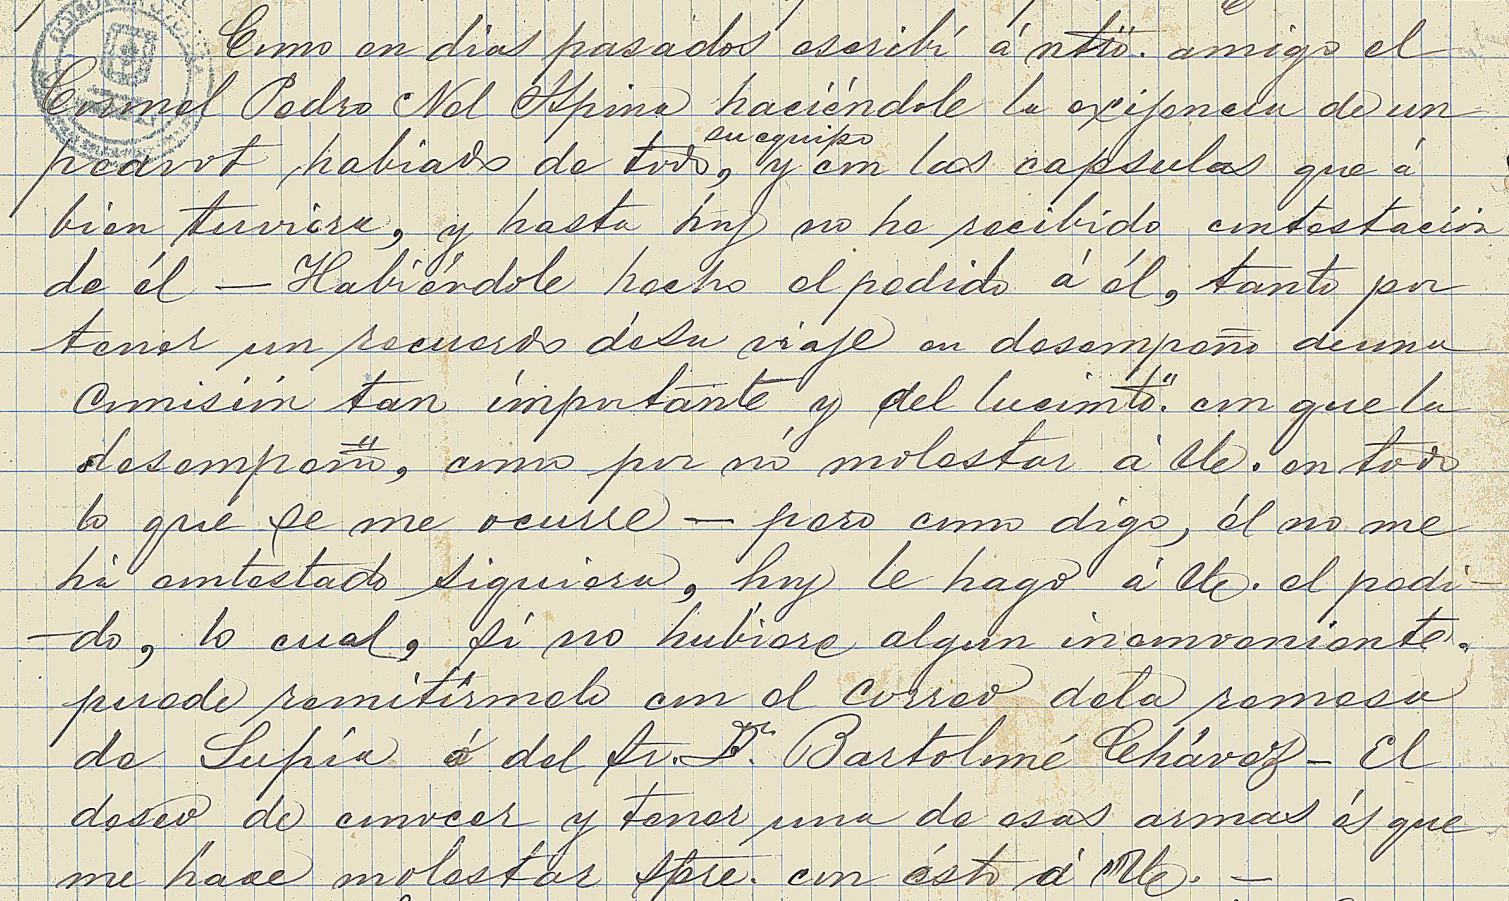 Como en dias pasados escribí á ntro. amigo el
Coronel Pedro Nel Ospina haciéndole la exijencia de un
peavot habiado de todo su equipo, y con las capsulas que á
bien tuviera, y hasta hoy no he recibido contestación
de él — Habiéndole hecho el pedido á él, tanto por
tener un recuerdo de su viaje en desempeño de una
comisión tan importante y del lucimto. con que la
desempeñó, como por nó molestar á Ue. en todo
lo que se me ocurre — pero como digo, él no me
há contestado siquiera, hoy le hago á Ue. el pedi-
-do, lo cual, si no hubiere algun inconveniente.
puede remitírmelo con el correo de la remesa
de Supía ó del Sr. Dr. Bartolomé Chávez — El
deseo de conocer y tener una de esas armas és que
me hace molestar spre. con ésto á Ue. —